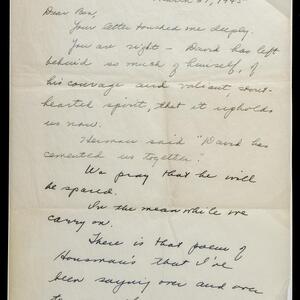 March 31, 1945
Dear Bea,
Your letter touched me deeply.
You are right — David has left
behind so much of himself, of
his courage and valiant, stout-
hearted spirit, that it upholds
us now.
Herman said "David has
cemented us together."
We pray that he will
be spared.
In the meanwhile we
carry on.
There is that poem of
Housman's that I've
been saying over and over